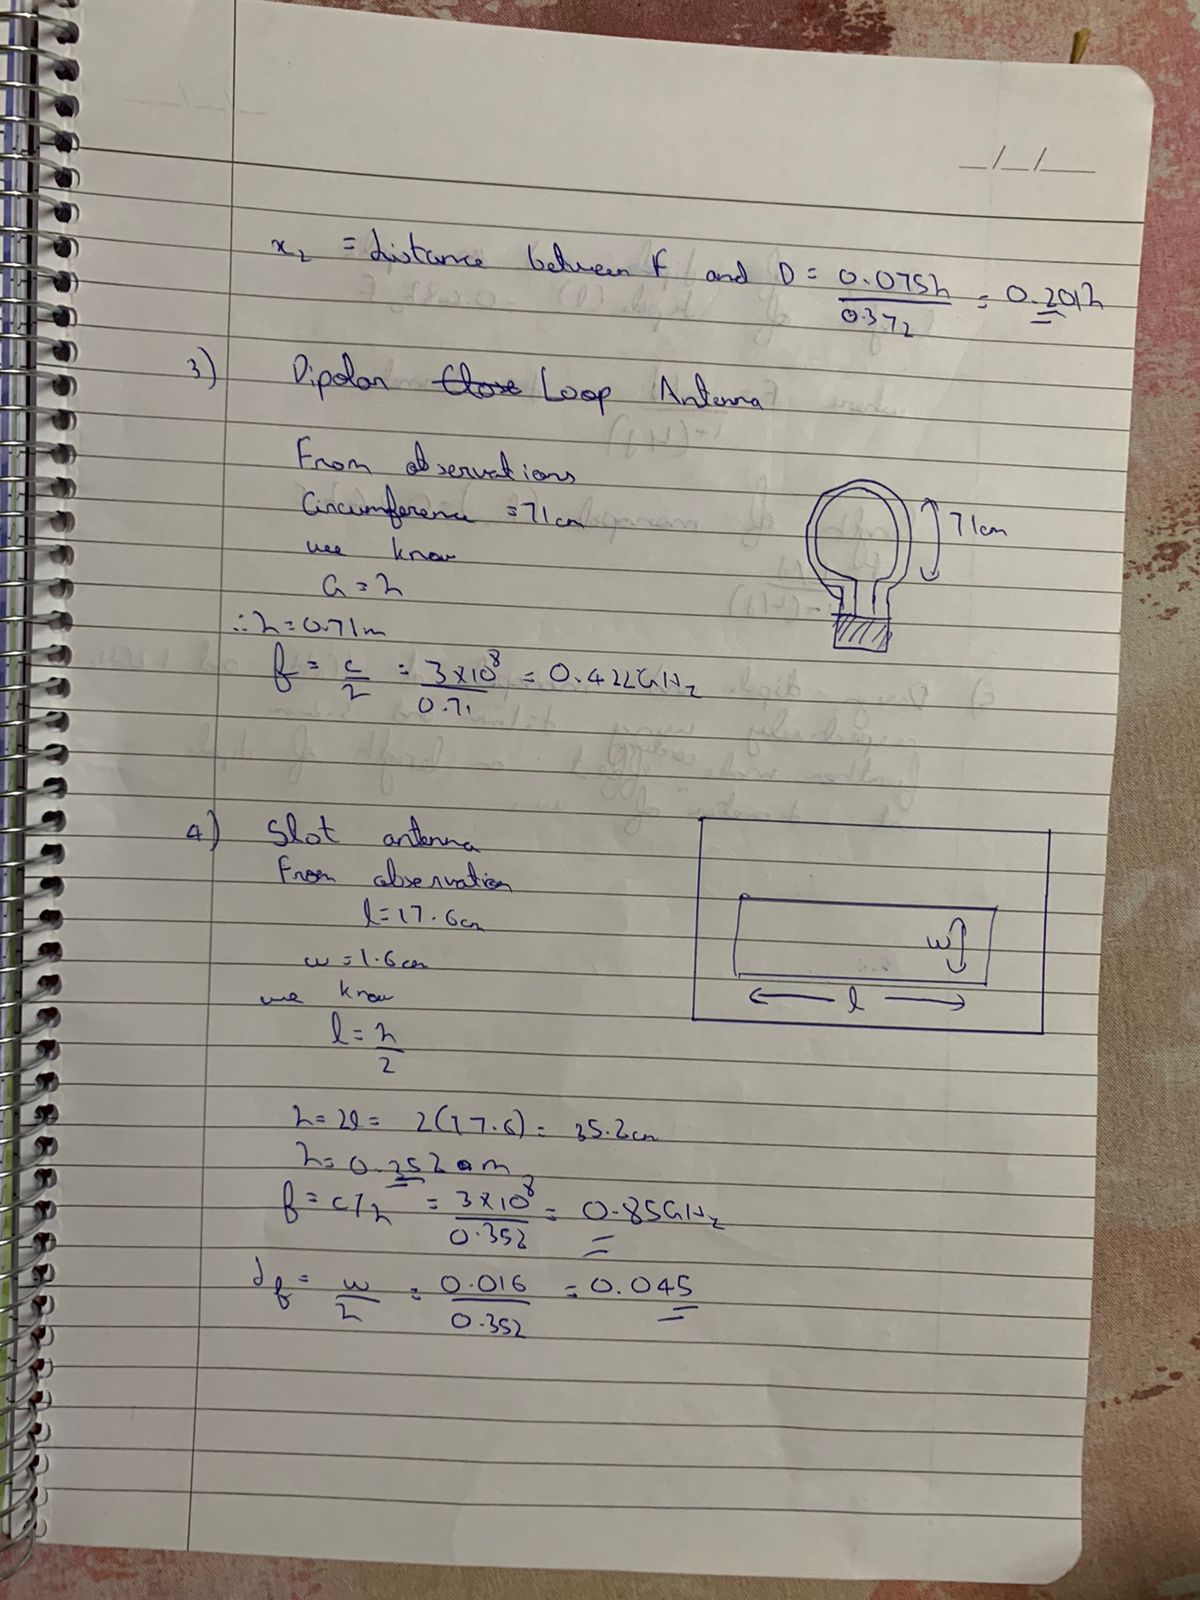 _/_/__
x₂ = distance between F and D = 0.075λ / 0.372 = 0.201λ
3) Dipolar Loop Antenna
From observations
Circumference = 71cm
we know
71cm
C = λ
∴ λ = 0.71m
f = c/λ = 3×10⁸ / 0.71 = 0.422GHz
4) Slot antenna
From observation
l = 17.6cm
w = 1.6cm
w
we know
l
l = λ/2
λ = 2l = 2(17.6) = 35.2cm
λ = 0.352 m
f = c/λ = 3×10⁸ / 0.352 = 0.85GHz
= w/λ = 0.016 / 0.352 = 0.045